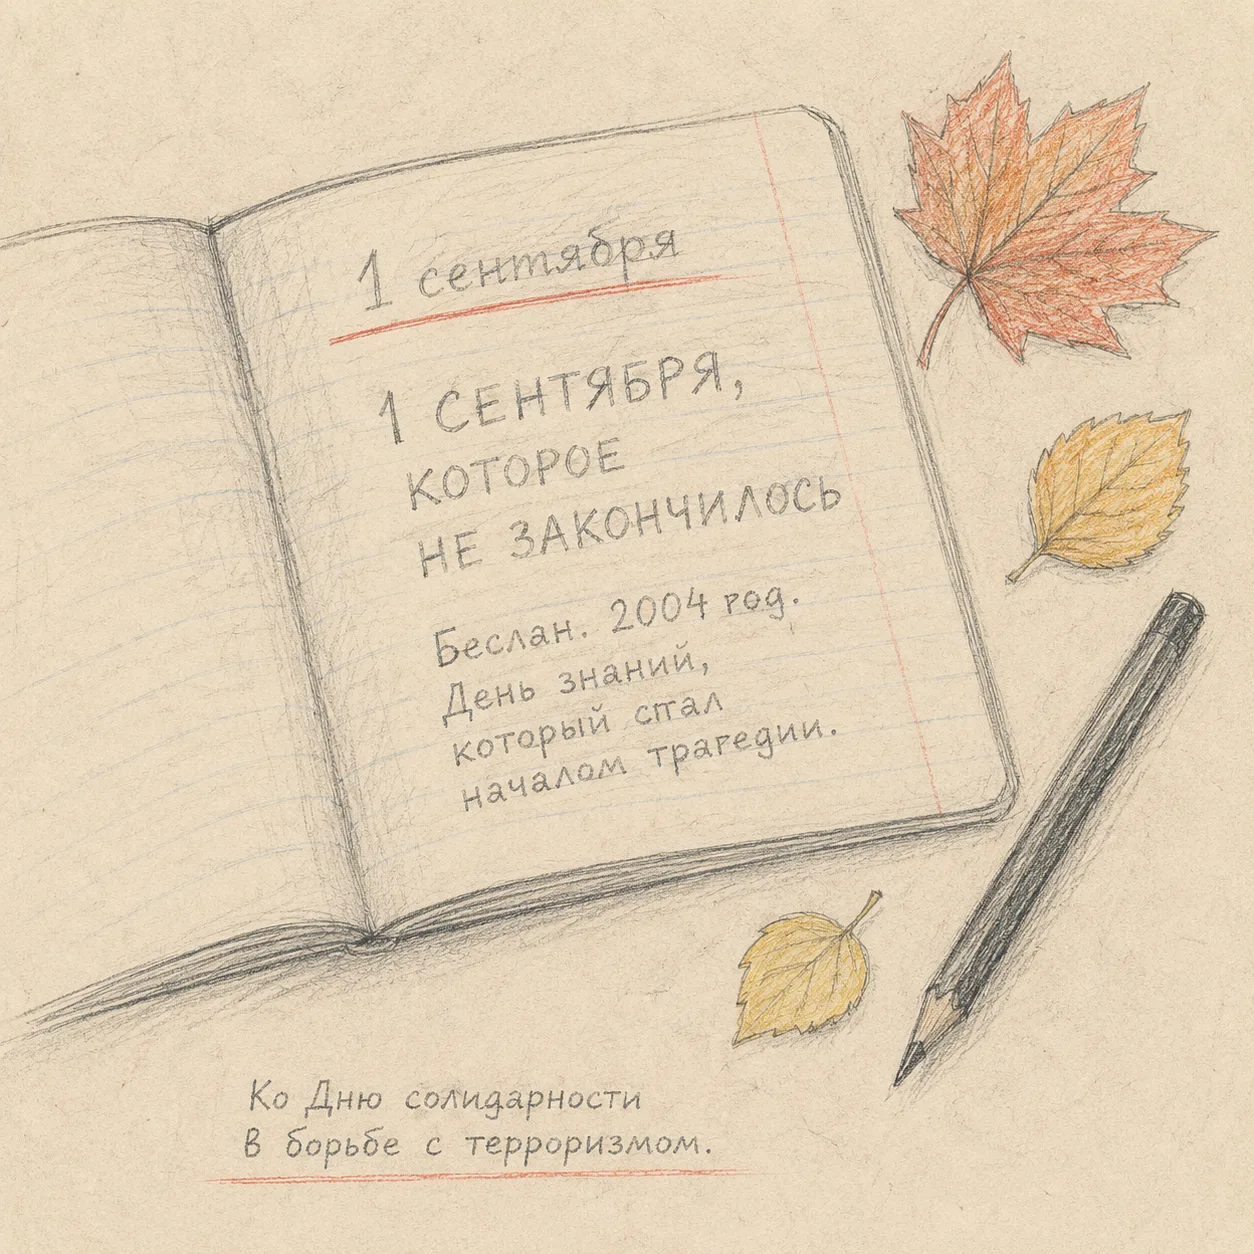 1 сентября
1 СЕНТЯБРЯ,
КОТОРОЕ
НЕ ЗАКОНЧИЛОСЬ
Беслан. 2004 год.
День знаний,
который стал
началом трагедии.
Ко Дню солидарности
в борьбе с терроризмом.